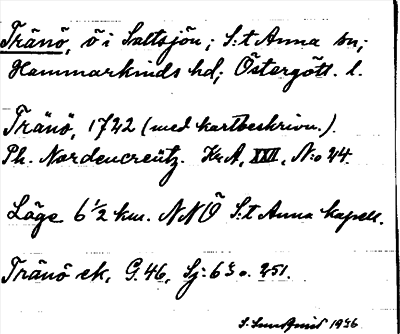 Tränö, ö i Saltsjön; S:t Anna sn;
Hammarkinds hd; Östergötl. l.
Tränö, 1722 (med kartbeskrivn.).
Ph. Nordencreütz. Kr.A, XXI, N:o 24.
Läge 6 1/2 km. NNÖ S:t Anna kapell.
Tränö ek, G. 46, Sj: 63 o. 251.
1936